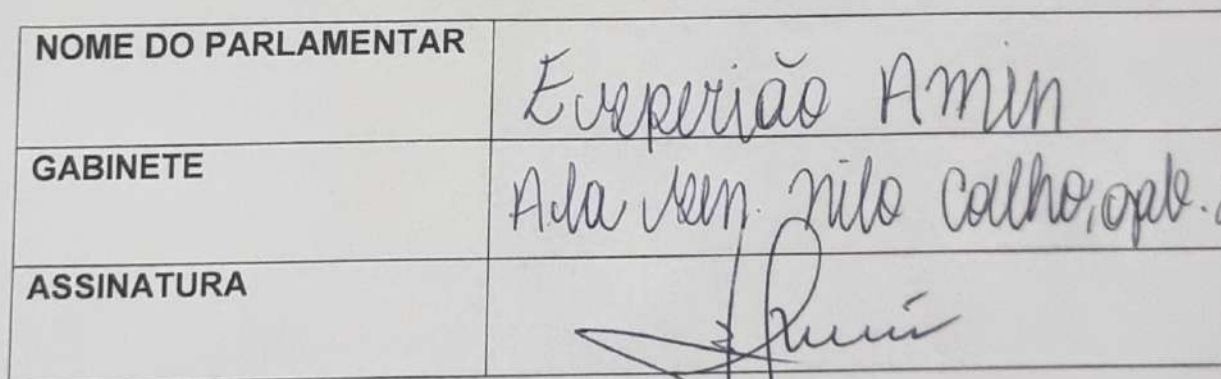 NOME DO PARLAMENTAR Esperião Amin
GABINETE Ala Sen. Nilo Coelho, gab.
ASSINATURA